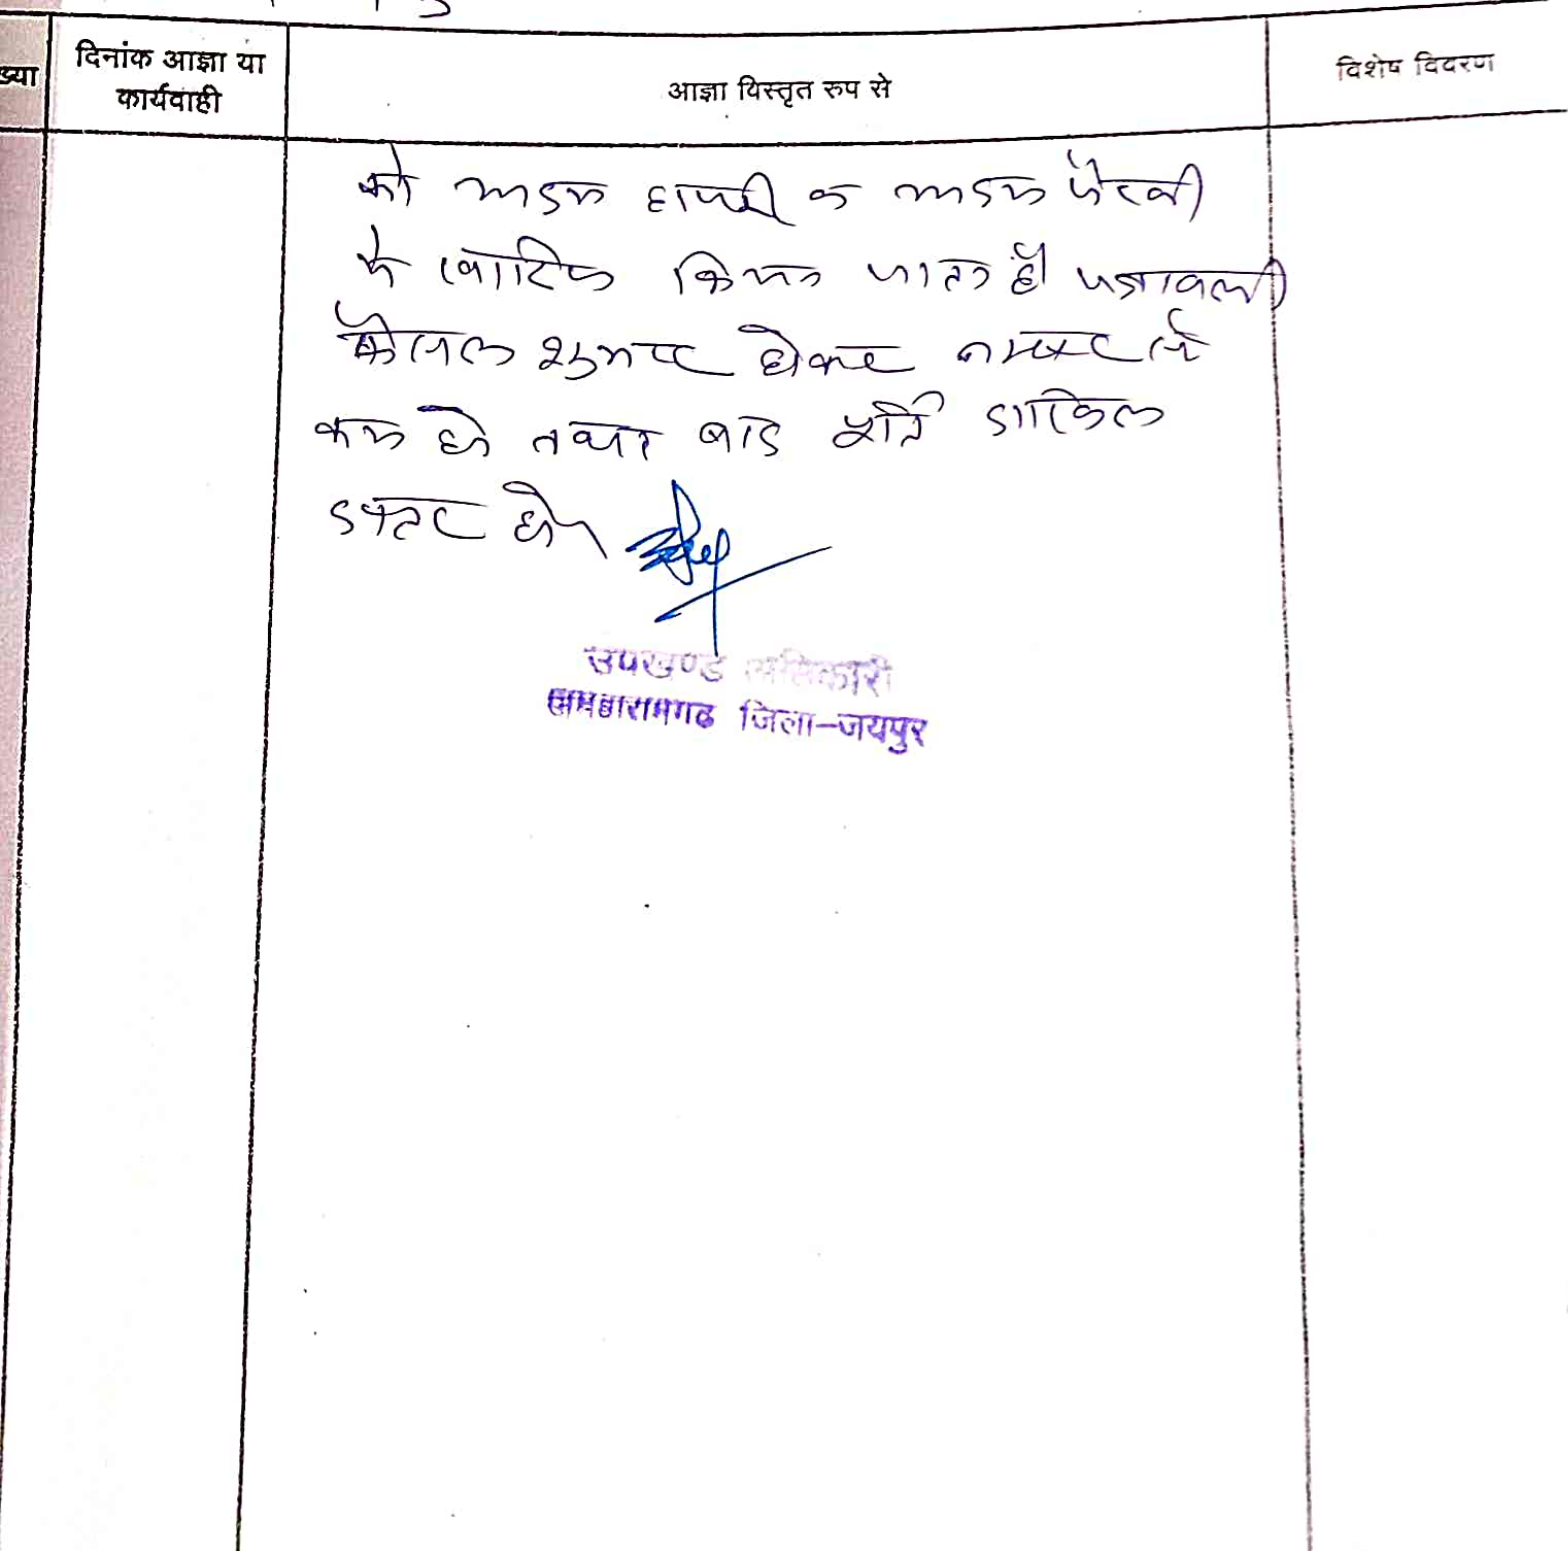 ख्या
दिनांक आज्ञा या
कार्यवाही
आज्ञा विस्तृत रुप से
विशेष विवरण
को अदम हाजरी व अदम पैरवी
में खारिज किया जाता है पत्रावली
फैसल शुमार होकर नम्बर से
कम हो तथा बाद पूर्ति दाखिल
दफ्तर हो।
उपखण्ड अधिकारी
जमवारामगढ जिला-जयपुर